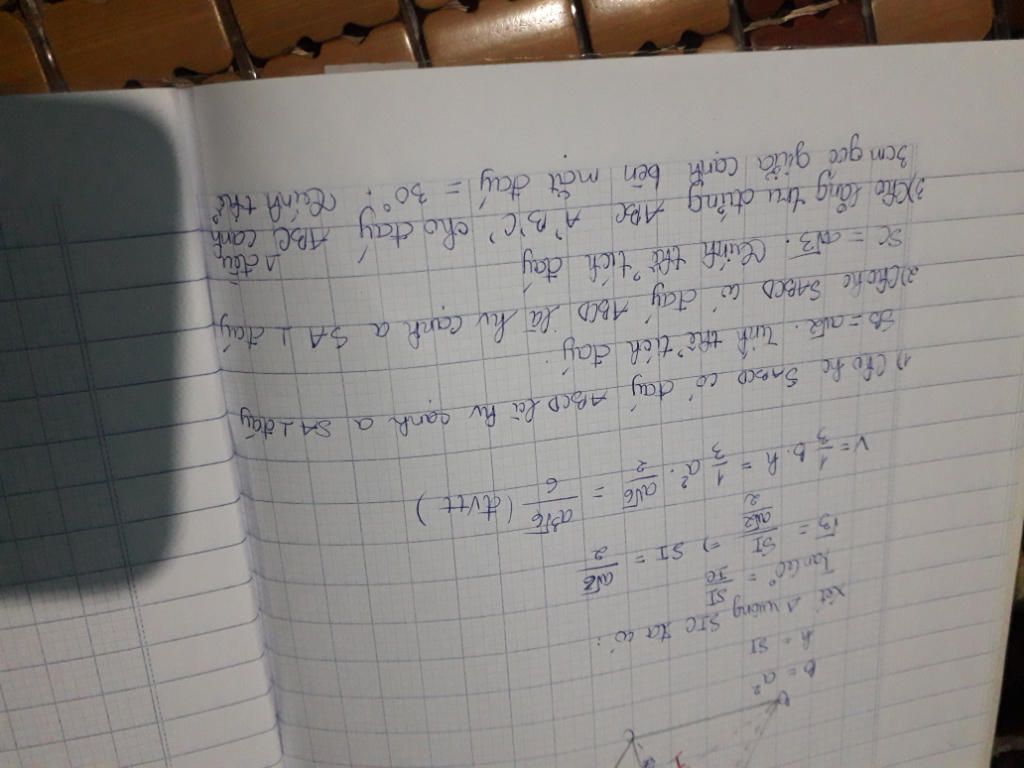 B = a²
h = SI
Xét Δ vuông SIC ta có:
Tan60° = SI/IC
√3 = SI/(a√2/2) ⇒ SI = a√6/2
V = 1/3 B.h = 1/3 a². a√6/2 = a³√6/6 (đvtt)
1) Cho hc SABCD có đáy ABCD là hv cạnh a SA ⊥ đáy
SB = a√2. Tính thể tích đáy.
2) Cho hc SABCD có đáy ABCD là hv cạnh a SA ⊥ đáy
SC = a√3. Tính thể tích đáy
3) Cho lăng trụ đứng ABC A'B'C' cho đáy ABC cạnh
3cm góc giữa cạnh bên mặt đáy = 30°. Tính thể